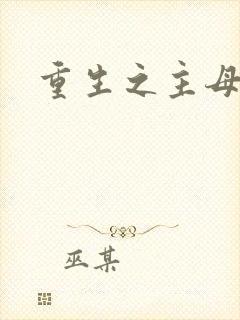 重生之主母
巫某